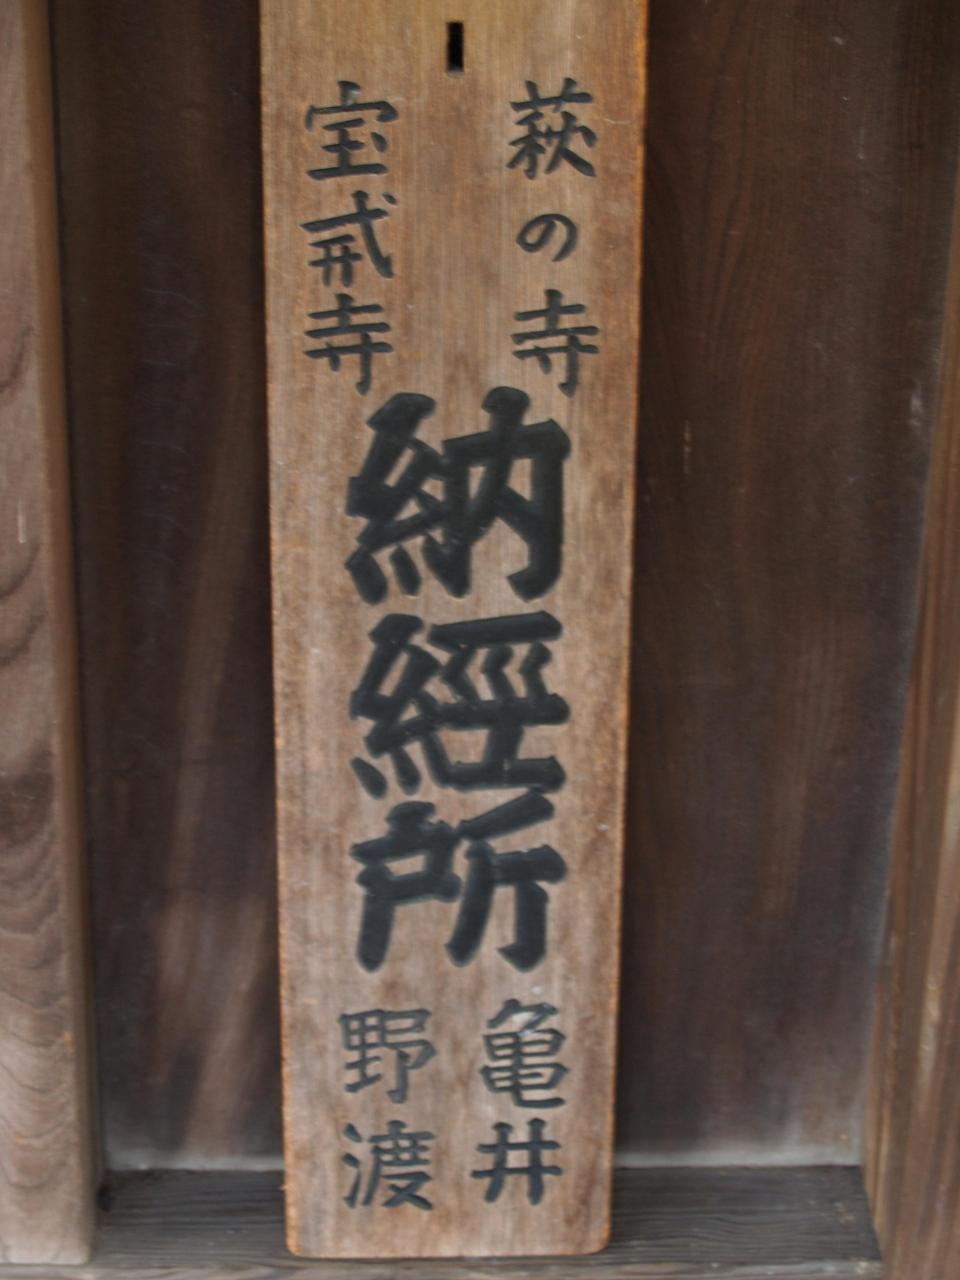 萩の寺
宝戒寺
納經所
亀井
野渡